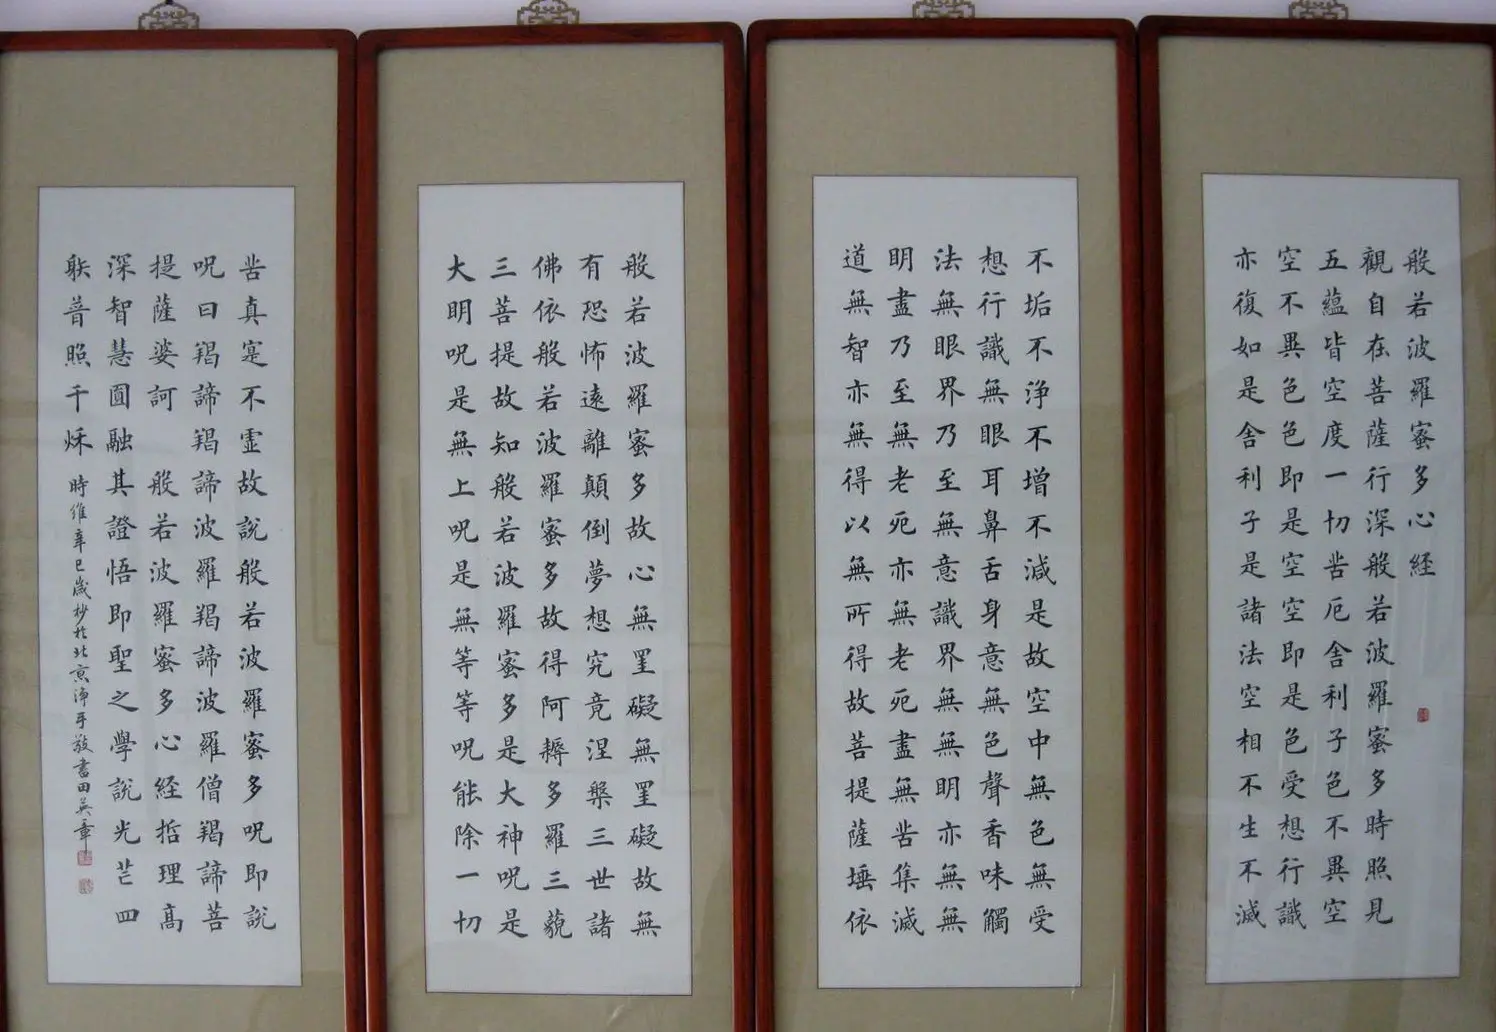 般若波羅蜜多心経
觀自在菩薩行深般若波羅蜜多時照見
五蘊皆空度一切苦厄舍利子色不異空
空不異色色即是空空即是色受想行識
亦復如是舍利子是諸法空相不生不滅
不垢不浄不增不減是故空中無色無受
想行識無眼耳鼻舌身意無色聲香味觸
法無眼界乃至無意識界無無明亦無無
明盡乃至無老死亦無老死盡無苦集滅
道無智亦無得以無所得故菩提薩埵依
般若波羅蜜多故心無罣礙無罣礙故無
有恐怖遠離顛倒夢想究竟涅槃三世諸
佛依般若波羅蜜多故得阿耨多羅三藐
三菩提故知般若波羅蜜多是大神呪是
大明呪是無上呪是無等等呪能除一切
苦真寔不霊故説般若波羅蜜多呪即説
呪曰羯諦羯諦波羅羯諦波羅僧羯諦菩
提薩婆訶 般若波羅蜜多心経哲理高
深智慧圓融其證悟即聖之學説光芒四
躾普照千秌 時維辛巳歳杪於北京淨手敬書田英章